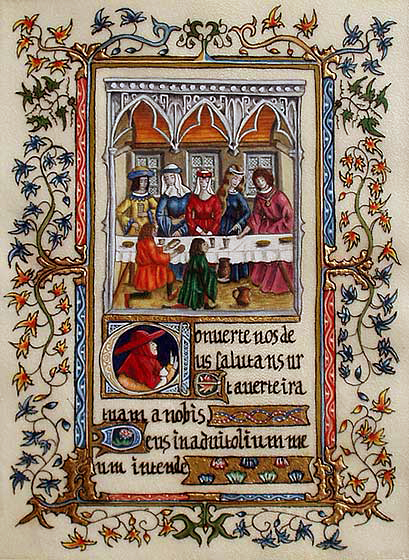 Conuerte nos de
us salutans ur
Et auerte ira
tuam a nobis
Deus in aduitolium me
um intende